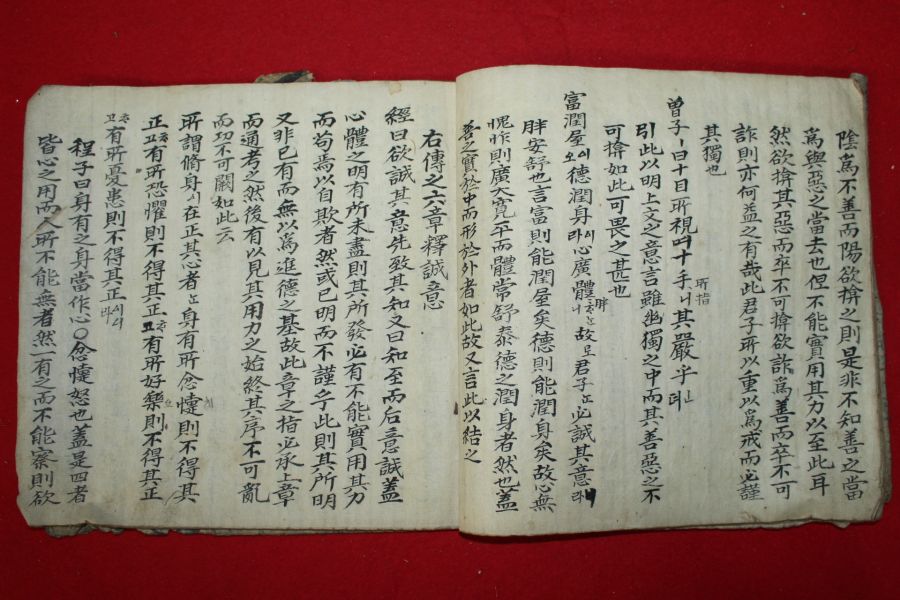 陰爲不善而陽欲揜之則是非不知善之當
爲與惡之當去也但不能實用其力以至此耳
然欲揜其惡而卒不可揜欲詐爲善而卒不可
詐則亦何益之有哉此君子所以重以爲戒而必謹
其獨也
曾子ㅣ曰十目所視며十手所指니其嚴乎뎌
引此以明上文之意言雖幽獨之中而其善惡之不
可揜如此可畏之甚也
富潤屋이오德潤身이라心廣體胖니故로君子는必誠其意라
胖安舒也言富則能潤屋矣德則能潤身矣故心無
愧怍則廣大寬平而體常舒泰德之潤身者然也盖
善之實於中而形於外者如此故又言此以結之
右傳之六章釋誠意
經曰欲誠其意先致其知又曰知至而后意誠盖
心體之明有所未盡則其所發必有不能實用其力
而苟焉以自欺者然或已明而不謹乎此則其所明
又非已有而無以爲進德之基故此章之指必承上章
而通考之然後有以見其用力之始終其序不可亂
而功不可闕如此云
所謂脩身이在正其心者는身有所忿懥則不得其
正고有所恐懼則不得其正고有所好樂則不得其正
고有所憂患則不得其正이라
程子曰身有之身當作心○忿懥怒也蓋是四者
皆心之用而人所不能無者然一有之而不能察則欲